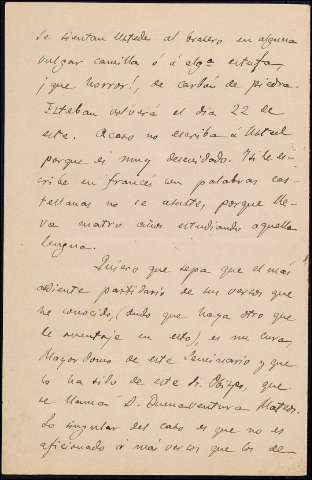 se sientan Ustedes al brasero en alguna
vulgar camilla ó á alga estufa,
¡que horror!, de carbón de piedra.
Esteban volverá el dia 22 de
este. Acaso no escriba á Usted
porque es muy descuidado. Si le es-
cribe en francés con palabras cas-
tellanas no se asuste, porque lle-
va cuatro años estudiando aquella
lengua.
Quiero que sepa que el más
ardiente partidario de sus versos que
he conocido, (dudo que haya otro que
le aventaje en esto), es un cura,
Mayordomo de este Seminario y que
lo ha sido de este Sr. Obispo, que
se llama D. Buenaventura Mateos.
Lo singular del caso es que no es
aficionado á más versos que los de